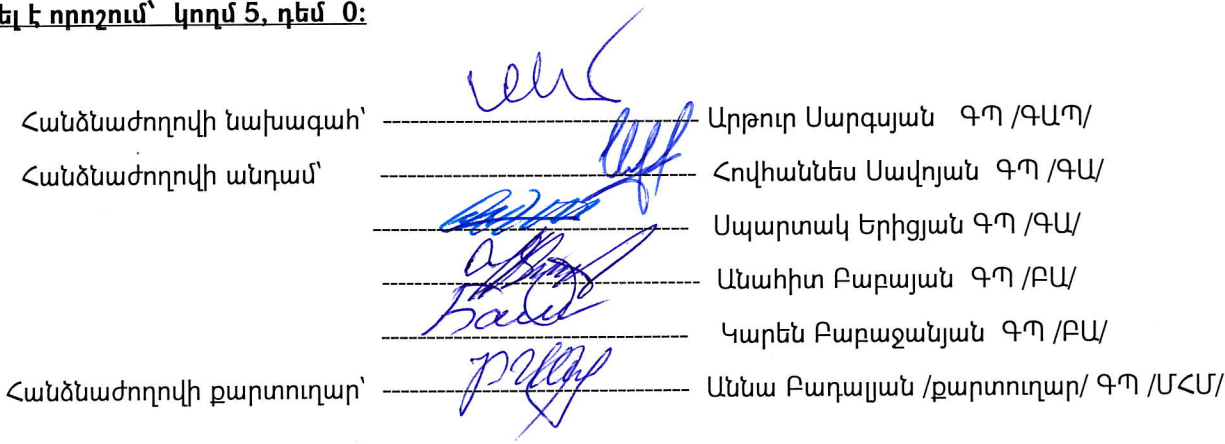 ել է որոշում՝ կողմ 5, դեմ 0:
Հանձնաժողովի նախագահ՝ Արթուր Սարգսյան ԳՊ /ԳԱՊ/
Հանձնաժողովի անդամ՝ Հովհաննես Սավոյան ԳՊ /ԳԱ/
Սպարտակ Երիցյան ԳՊ /ԳԱ/
Անահիտ Բաբայան ԳՊ /ԲԱ/
Կարեն Բաբաջանյան ԳՊ /ԲԱ/
Հանձնաժողովի քարտուղար՝ Աննա Բադալյան /քարտուղար/ ԳՊ /ՄՀՄ/